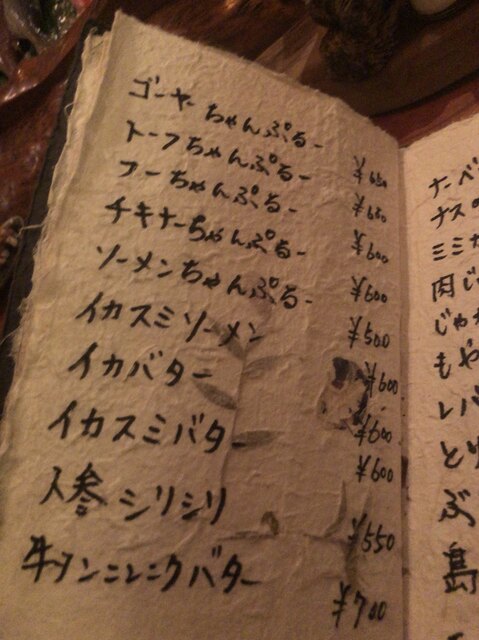 ゴーヤーちゃんぷるー ¥650
トーフちゃんぷるー ¥650
フーちゃんぷるー ¥600
チキナーちゃんぷるー ¥600
ソーメンちゃんぷるー ¥500
イカスミソーメン ¥600
イカバター ¥600
イカスミバター ¥600
人参シリシリ ¥550
牛タンニンニクバター ¥700
ナーベ
ナスの
ミミ
肉じ
じゃ
もや
レバ
とり
ぶ
島